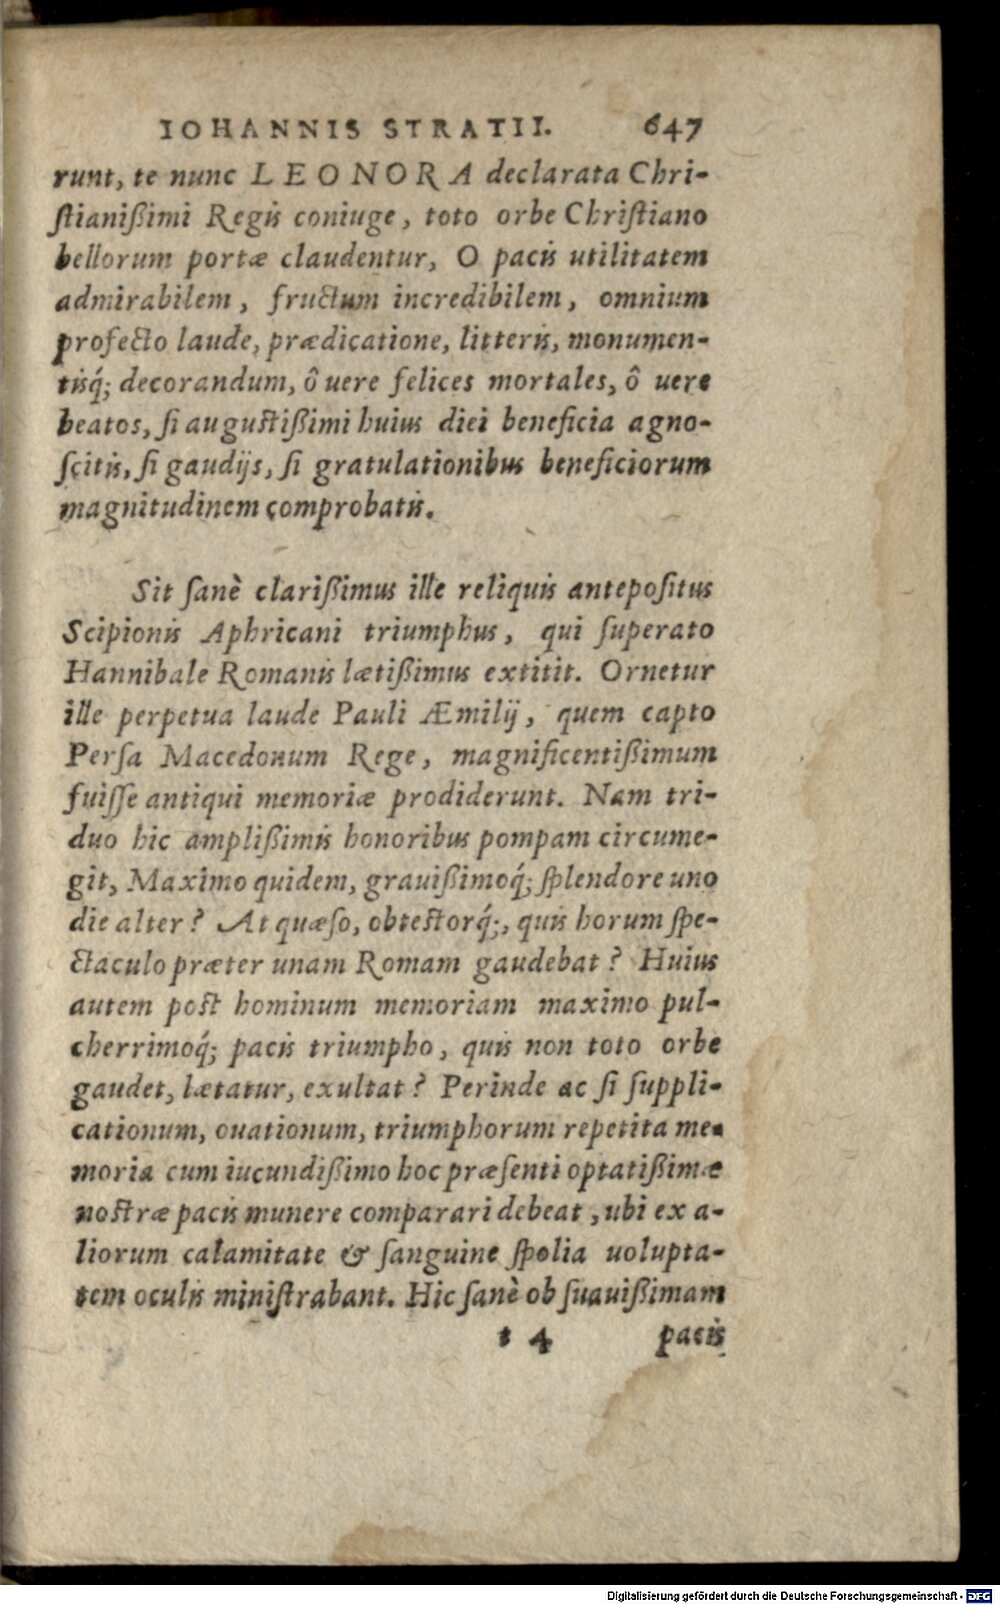 IOHANNIS STRATII. 647
runt, te nunc LEONORA declarata Chri-
ſtianißimi Regis coniuge, toto orbe Chriſtiano
bellorum portæ claudentur, O pacis utilitatem
admirabilem, fructum incredibilem, omnium
profecto laude, prædicatione, litteris, monumen-
tisq́; decorandum, ô uere felices mortales, ô uere
beatos, ſi auguſtißimi huius diei beneficia agno-
ſcitis, ſi gaudijs, ſi gratulationibus beneficiorum
magnitudinem comprobatis.
Sit ſanè clarißimus ille reliquis antepoſitus
Scipionis Aphricani triumphus, qui ſuperato
Hannibale Romanis lætißimus extitit. Ornetur
ille perpetua laude Pauli Æmilij, quem capto
Perſa Macedonum Rege, magnificentißimum
fuiſſe antiqui memoriæ prodiderunt. Nam tri-
duo hic amplißimis honoribus pompam circume-
git, Maximo quidem, grauißimoq́; ſplendore uno
die alter? At quæſo, obteſtorq́;, quis horum ſpe-
ctaculo præter unam Romam gaudebat? Huius
autem poſt hominum memoriam maximo pul-
cherrimoq́; pacis triumpho, quis non toto orbe
gaudet, lætatur, exultat? Perinde ac ſi ſuppli-
cationum, ouationum, triumphorum repetita me-
moria cum iucundißimo hoc præſenti optatißimæ
noſtræ pacis munere comparari debeat, ubi ex a-
liorum calamitate & ſanguine ſpolia uolupta-
tem oculis miniſtrabant. Hic ſanè ob ſuauißimam
t 4 pacis
Digitalisierung gefördert durch die Deutsche Forschungsgemeinschaft - DFG